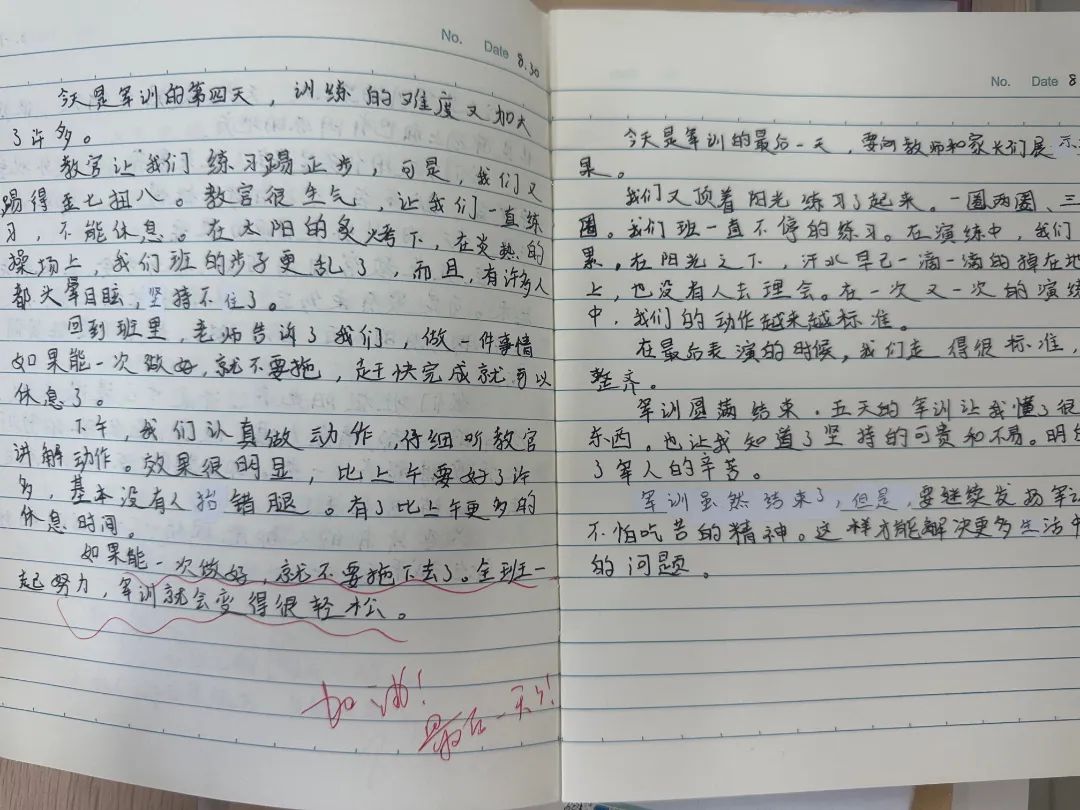 No.
Date 8.30
今天是军训的第四天，训练的难度又加大
了许多。
教官让我们练习踢正步，可是，我们又
踢得歪七扭八。教官很生气，让我们一直练
习，不能休息。在太阳的炙烤下，在炎热的
操场上，我们班的步子更乱了，而且，有许多人
都头晕目眩，坚持不住了。
回到班里，老师告诉了我们，做一件事情
如果能一次做好，就不要拖，赶快完成就可以
休息了。
下午，我们认真做动作，仔细听教官
讲解动作。效果很明显，比上午要好了许
多，基本没有人抬错腿。有了比上午更多的
休息时间。
如果能一次做好，就不要拖下去了。全班一
起努力，军训就会变得很轻松。
加油！
最后一天了！
No.
Date 8
今天是军训的最后一天，要向教师和家长们展示
果。
我们又顶着阳光练习了起来。一圈两圈、三
圈。我们班一直不停的练习。在演练中，我们
累。在阳光之下，汗水早已一滴一滴的掉在地
上，也没有人去理会。在一次又一次的演练
中，我们的动作越来越标准。
在最后表演的时候，我们走得很标准，
整齐。
军训圆满结束。五天的军训让我懂了很
东西。也让我知道了坚持的可贵和不易。明白
了军人的辛苦。
军训虽然结束了，但是，要继续发扬军训
不怕吃苦的精神。这样才能解决更多生活中
的问题。